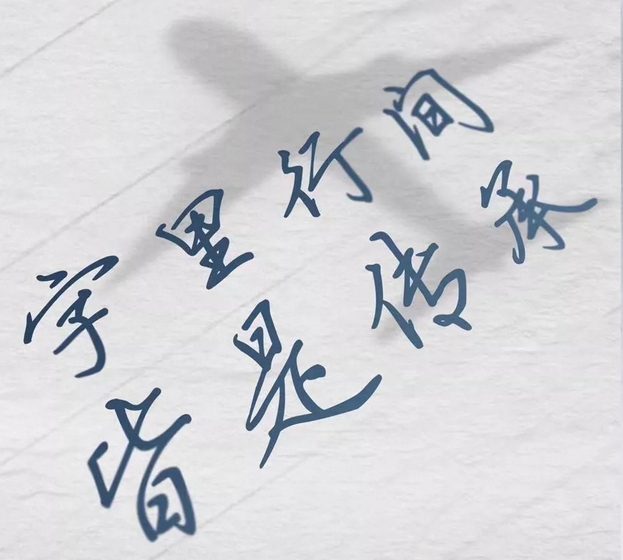 字里行间
皆是传承